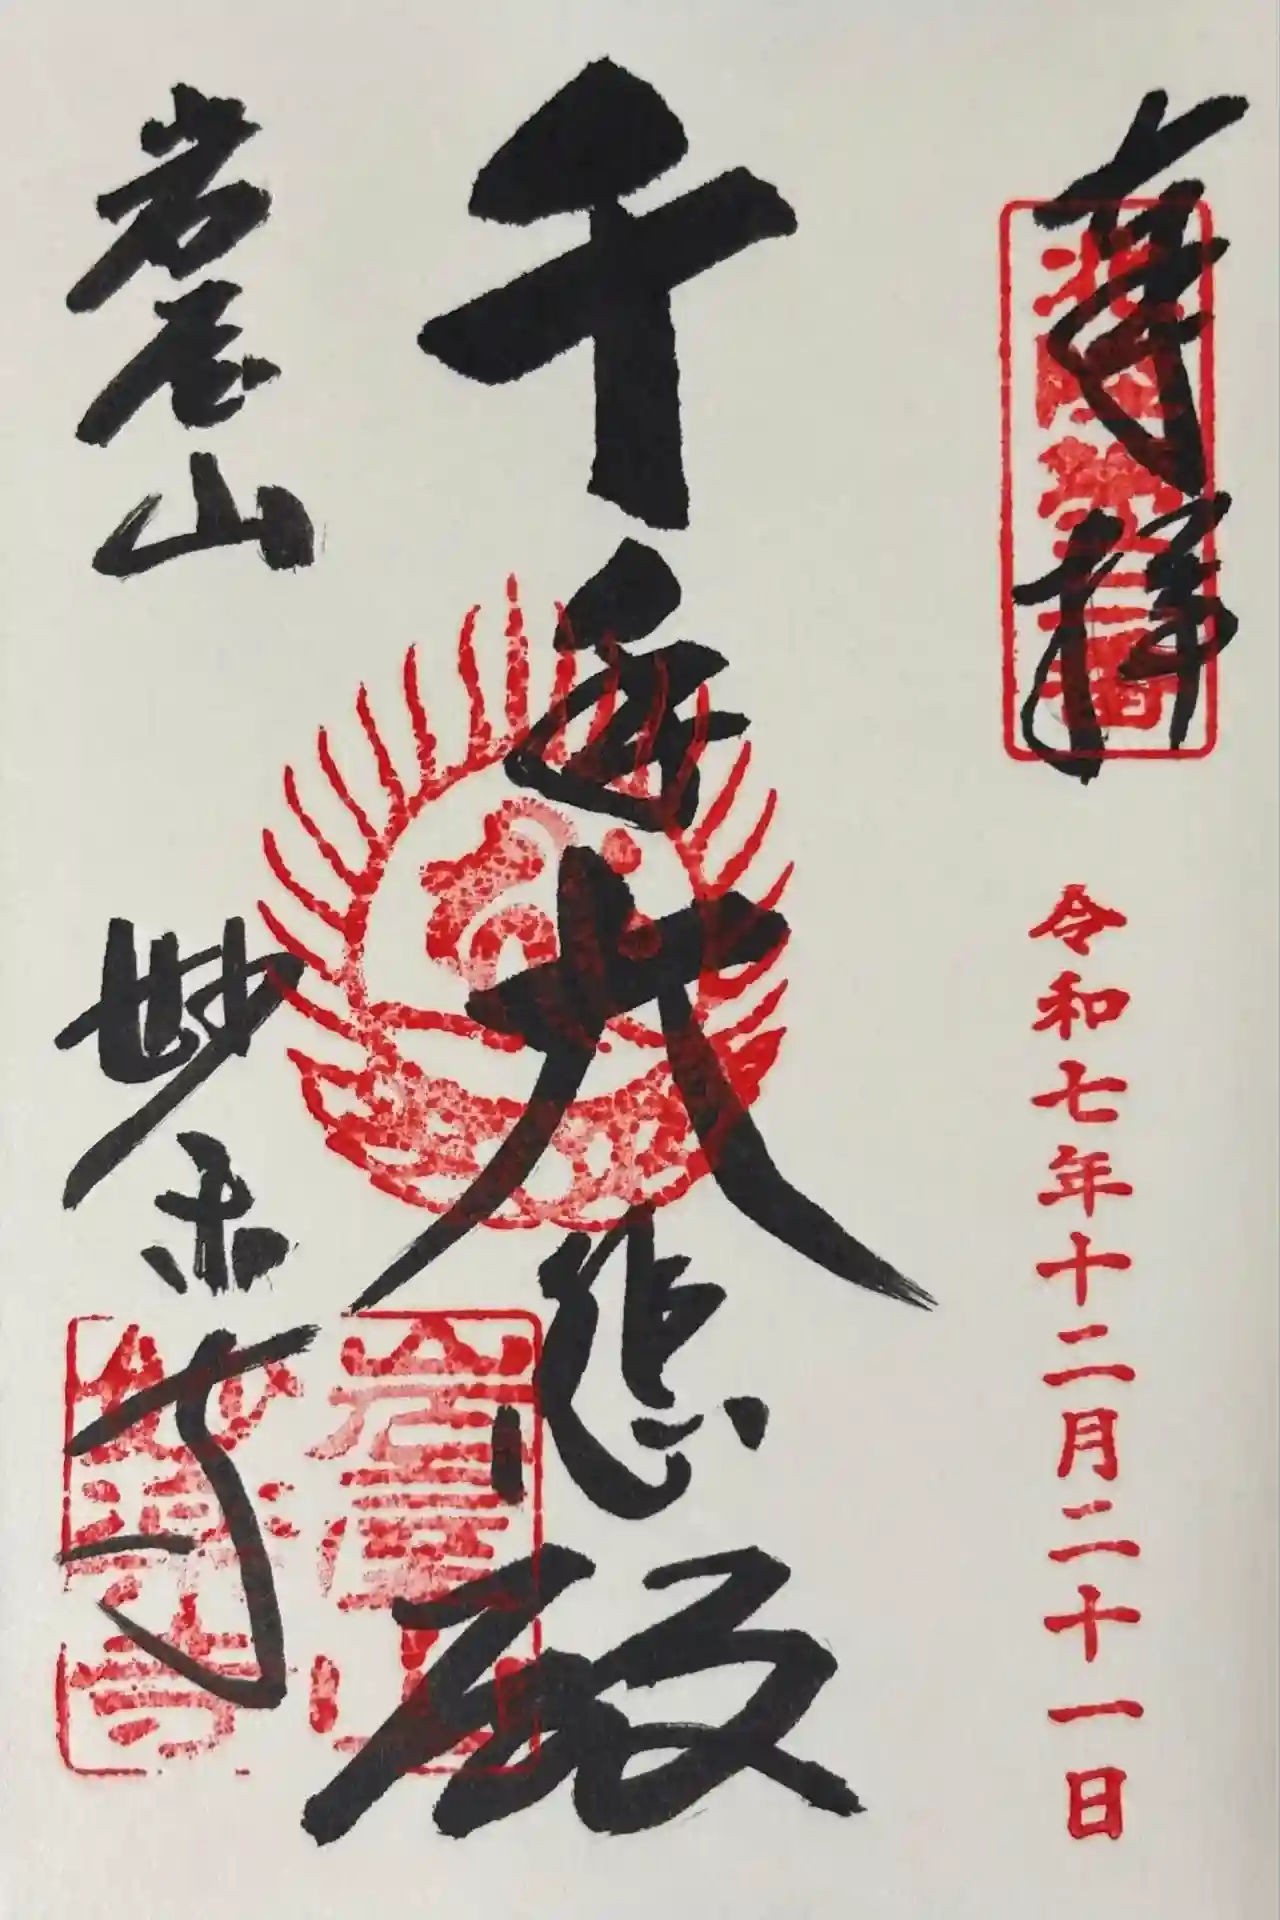 奉拝
北陸第三番
令和七年十二月二十一日
千手大悲殿
岩屋山
妙楽寺
岩屋山
妙楽寺